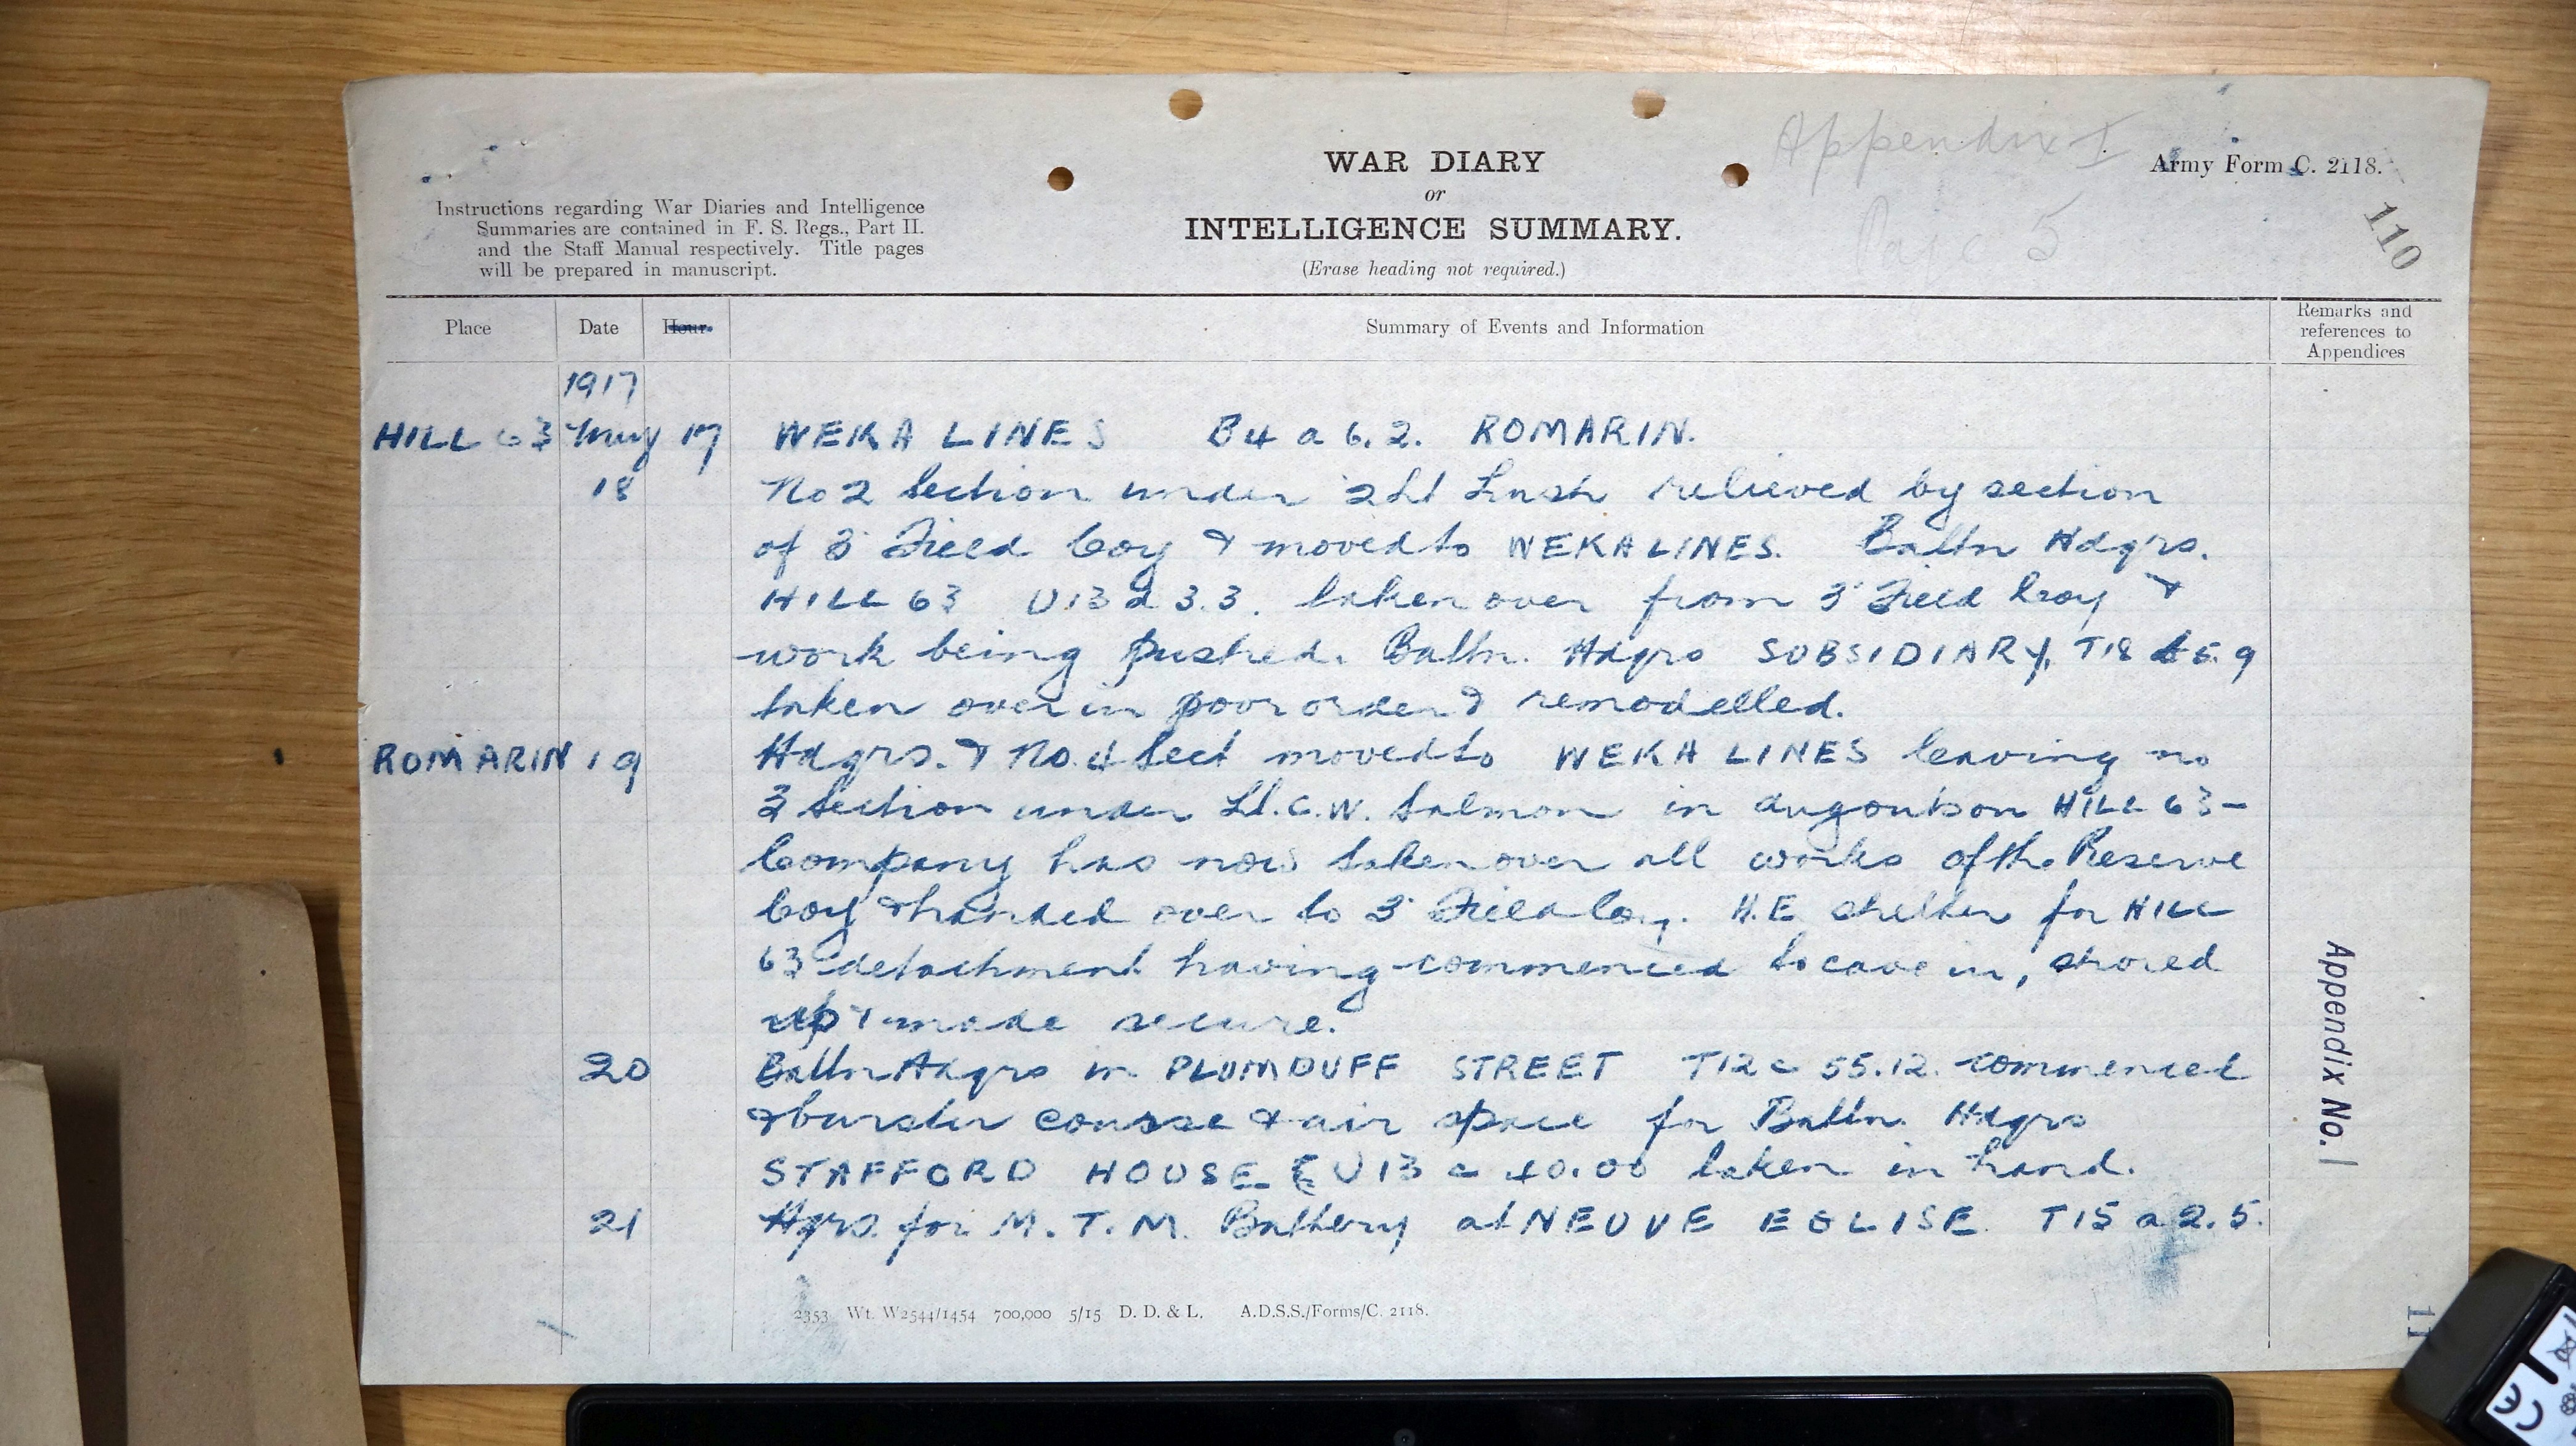 Appendix I
Army Form C. 2118.
Page 5
110
WAR DIARY
or
INTELLIGENCE SUMMARY.
(Erase heading not required.)
Instructions regarding War Diaries and Intelligence
Summaries are contained in F. S. Regs., Part II.
and the Staff Manual respectively. Title pages
will be prepared in manuscript.
Place Date Hour Summary of Events and Information Remarks and references to Appendices
1917
HILL 63 May 17 WEKA LINES B4 a 6.2. ROMARIN.
18 No 2 Section under 2Lt Lush relieved by section
of 3 Field Coy & moved to WEKA LINES. Battn Hdqrs.
HILL 63 U13 d 3.3. taken over from 3 Field Coy &
work being pushed. Battn. Hdqrs SUBSIDIARY, T18 b 5.9
taken over in poor order & remodelled.
ROMARIN 19 Hdqrs. & No. 4 Sect moved to WEKA LINES leaving no
3 Section under Lt. C.W. Salmon in dugouts on HILL 63 -
Company has now taken over all works of the Reserve
Coy & handed over to 3 Field Coy. H.E. shelter for HILL
63 detachment having commenced to cave in, shored
up & made secure.
20 Battn Hdqrs in PLUMDUFF STREET T12 c 55.12. commenced
& burster course & air space for Battn. Hdqrs
STAFFORD HOUSE U13 c 40.00 taken in hand.
21 Hqrs. for M. T. M. Battery at NEUVE EGLISE T15 a 2.5.
Appendix No. 1
2353 Wt. W2544/1454 700,000 5/15 D. D. & L. A.D.S.S./Forms/C. 2118.
11
CE